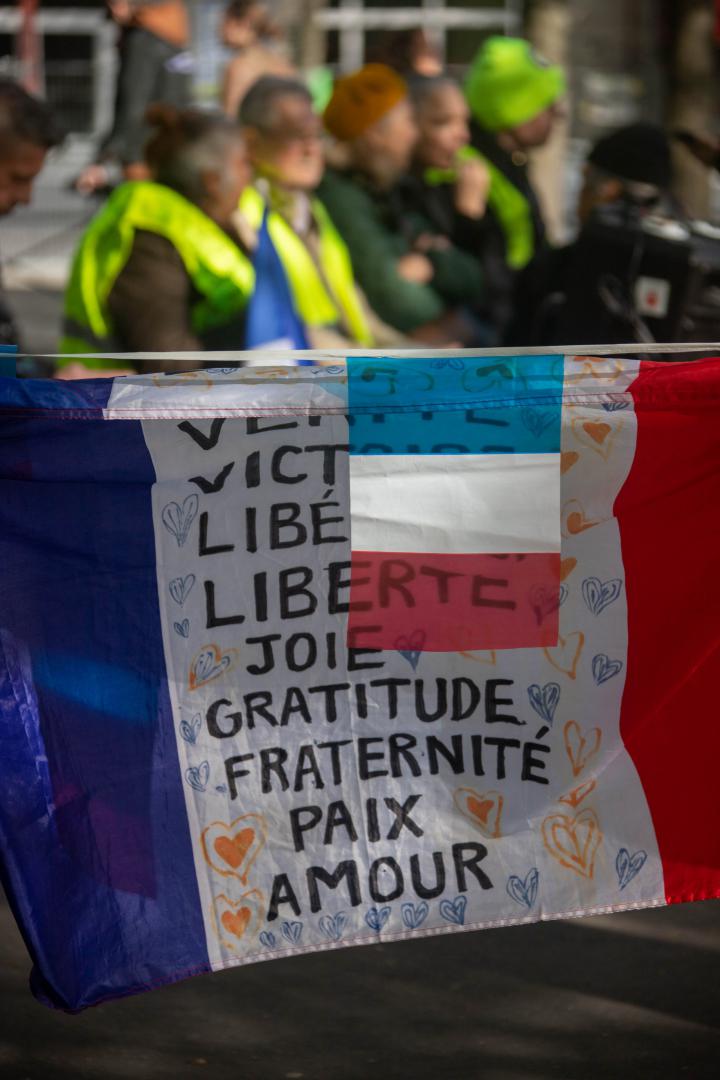 VÉRITÉ
VICTOIRE
LIBÉ
LIBERTE
JOIE
GRATITUDE
FRATERNITÉ
PAIX
AMOUR